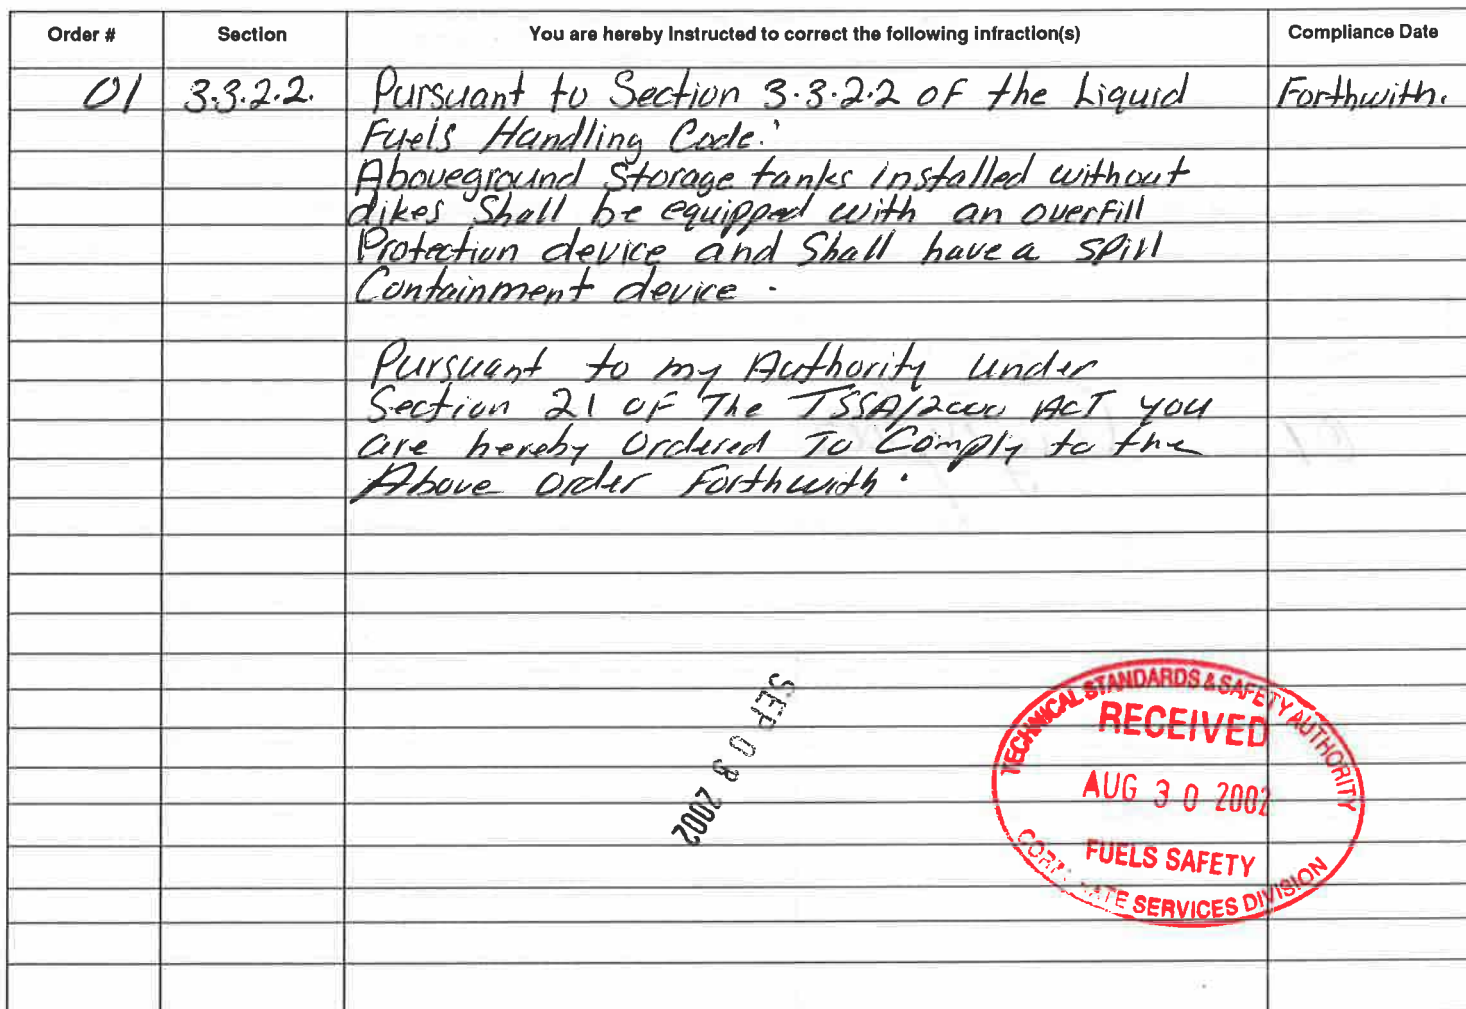 Order # Section You are hereby Instructed to correct the following infraction(s) Compliance Date
01 3.3.2.2. Pursuant to Section 3.3.2.2 of the Liquid Forthwith.
Fuels Handling Code:
Aboveground Storage tanks installed without
dikes Shall be equipped with an overfill
Protection device and Shall have a spill
Containment device.
Pursuant to my Authority under
Section 21 of The TSSA/2000 ACT you
are hereby Ordered To Comply to the
Above Order Forthwith.
SEP 0 2002
TECHNICAL STANDARDS & SAFETY AUTHORITY
RECEIVED
AUG 30 2002
FUELS SAFETY
SERVICES DIVISION